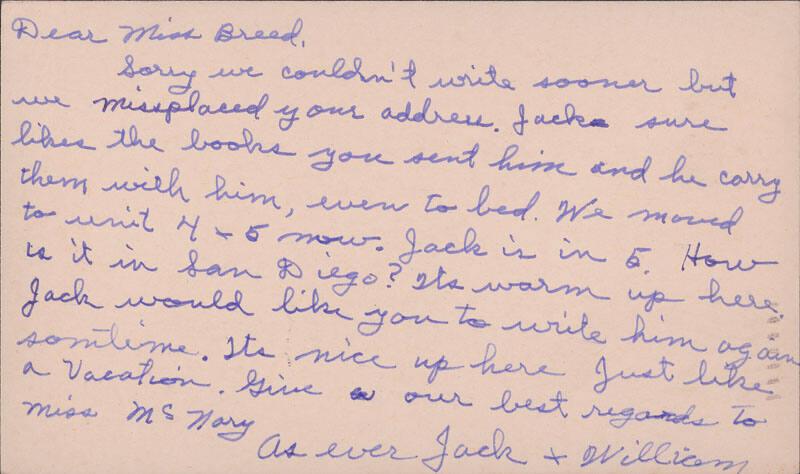 Dear Miss Breed,
Sorry we couldn't write sooner but
we missplaced your address. Jack sure
likes the books you sent him and he carry
them with him, even to bed. We moved
to unit 4 + 5 now. Jack is in 5. How
is it in San Diego? Its warm up here.
Jack would like you to write him again
somtime. Its nice up here Just like
a Vacation. Give our best regards to
miss McNary
As ever Jack + William